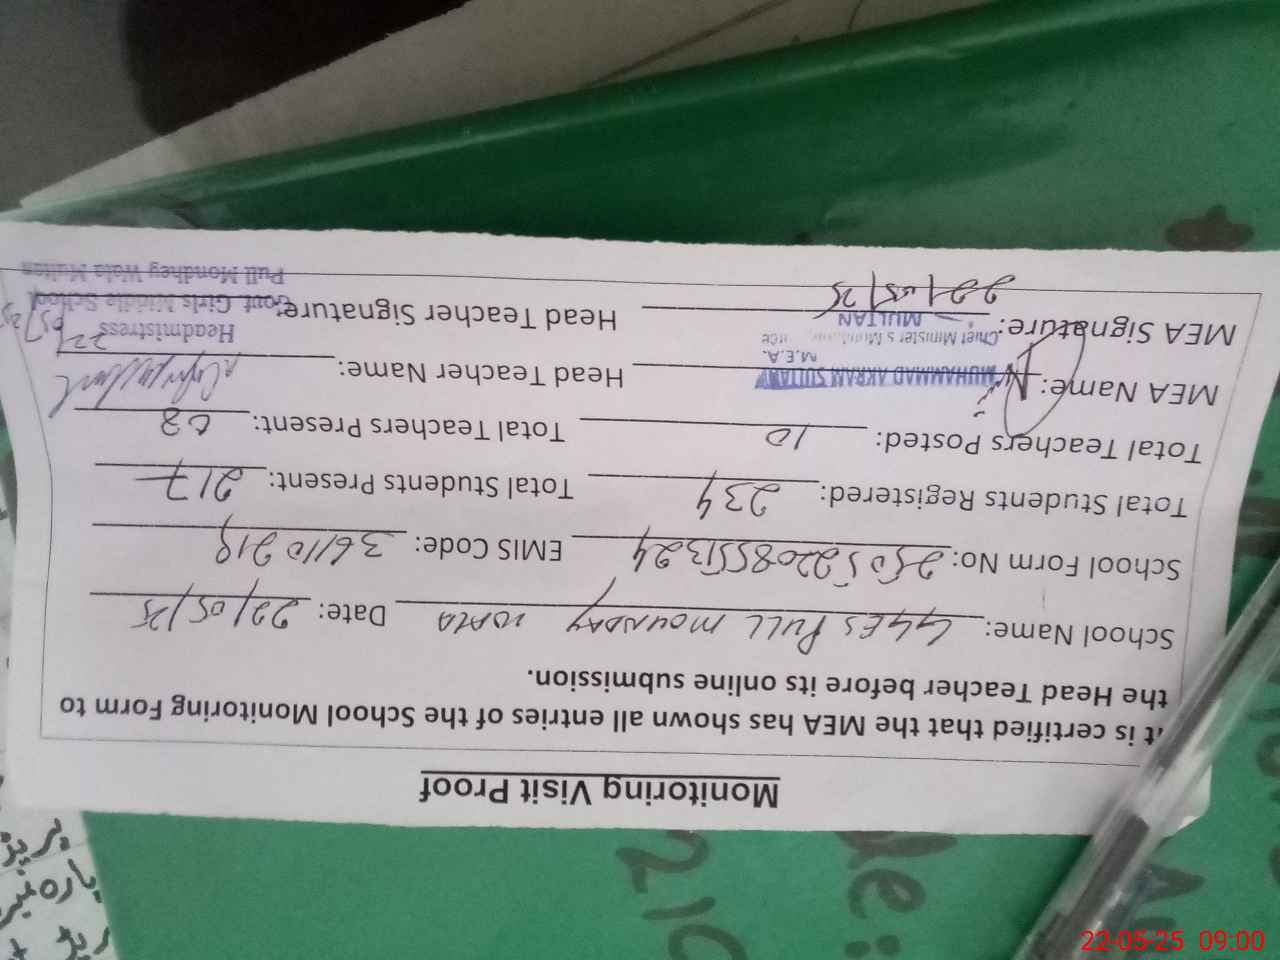 Monitoring Visit Proof
It is certified that the MEA has shown all entries of the School Monitoring Form to
the Head Teacher before its online submission.
School Name: GGES PULL MOUNDAY WALA Date: 22/05/25
School Form No: 25052208551324 EMIS Code: 36110219
Total Students Registered: 234 Total Students Present: 217
Total Teachers Posted: 10 Total Teachers Present: 08
MEA Name: MUHAMMAD AKRAM SULTAN Head Teacher Name:
M.E.A.
Chief Minister's
MULTAN
MEA Signature: 22/05/25 Head Teacher Signature: 22/05/25
Headmistress
Govt. Girls Middle School
Pull Mondhey Wala Multan
de:
210
22-05-25 09:00